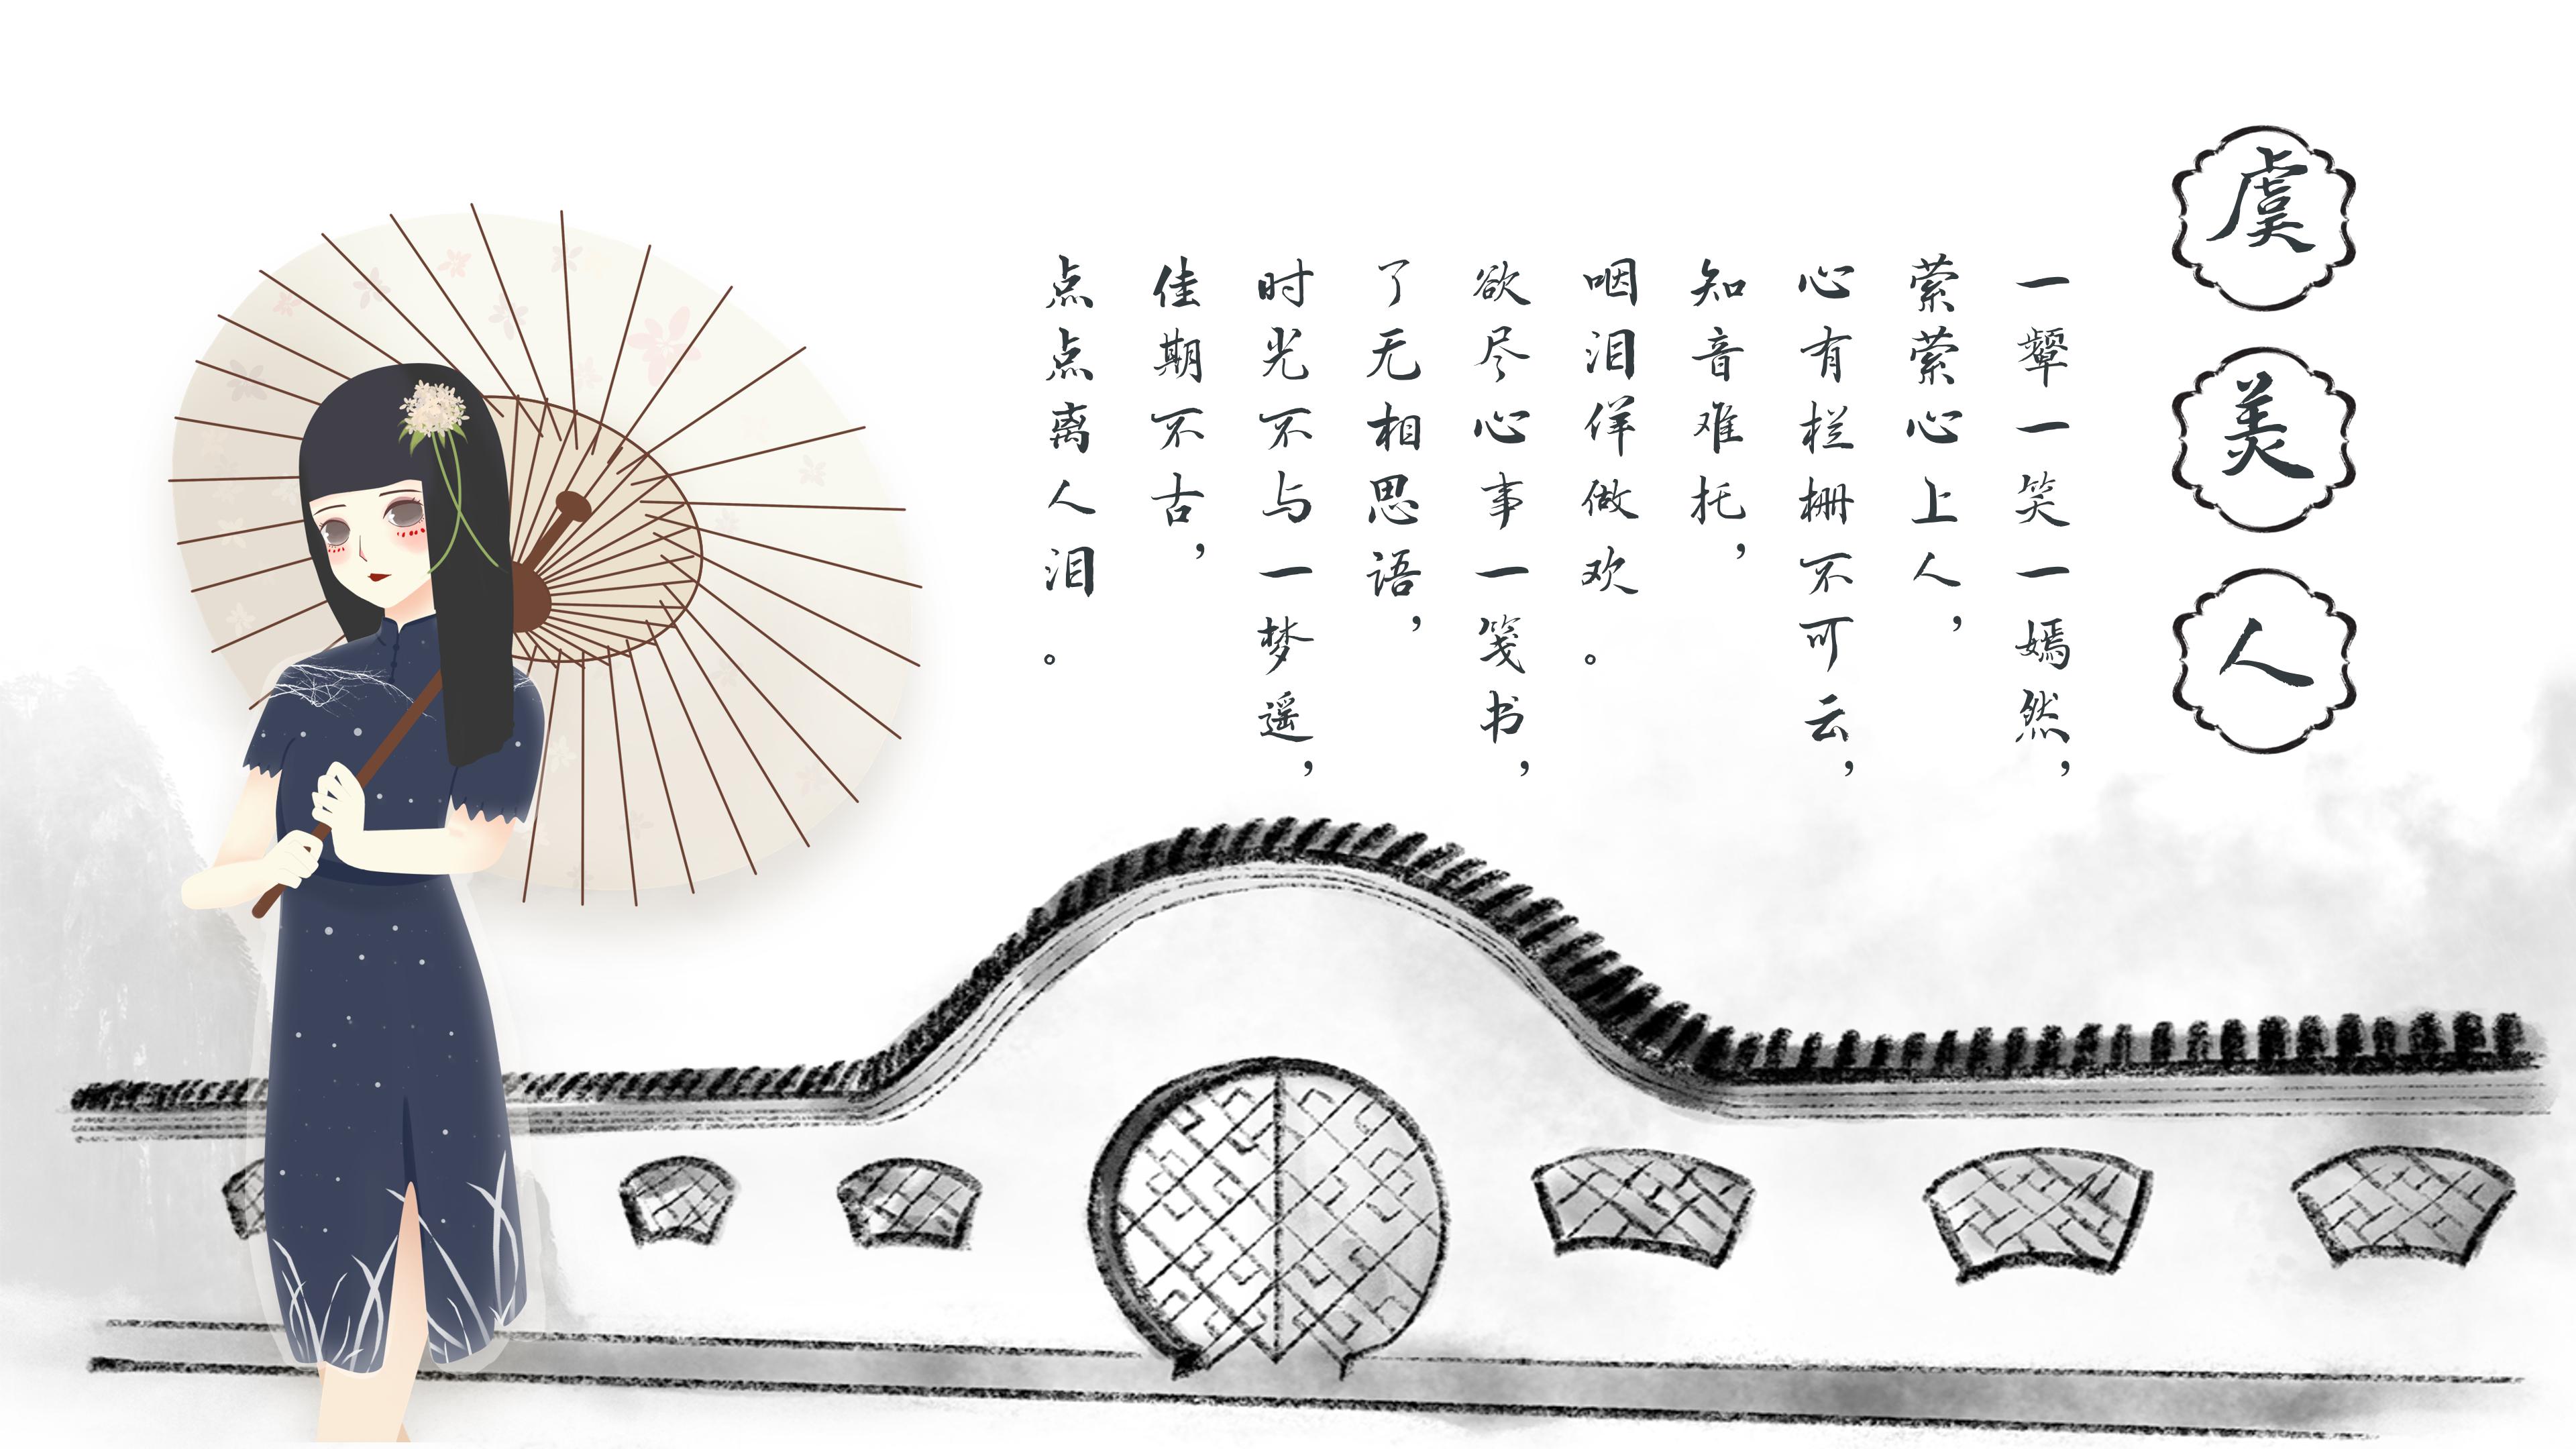 虞美人
一颦一笑一嫣然，
萦萦心上人，
心有栏栅不可云，
知音难托，
咽泪佯做欢。
欲尽心事一笺书，
了无相思语，
时光不与一梦遥，
佳期不古，
点点离人泪。